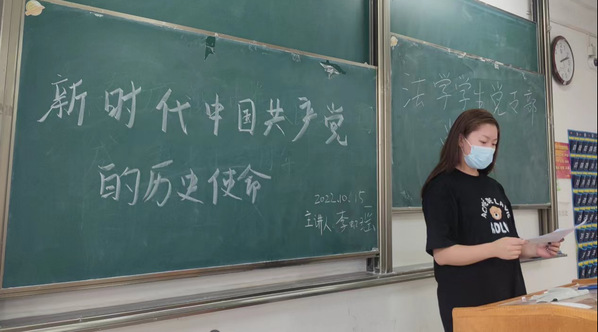 新时代中国共产党
的历史使命
2022.10.15
主讲人 李
法学学生党支部
ADLV